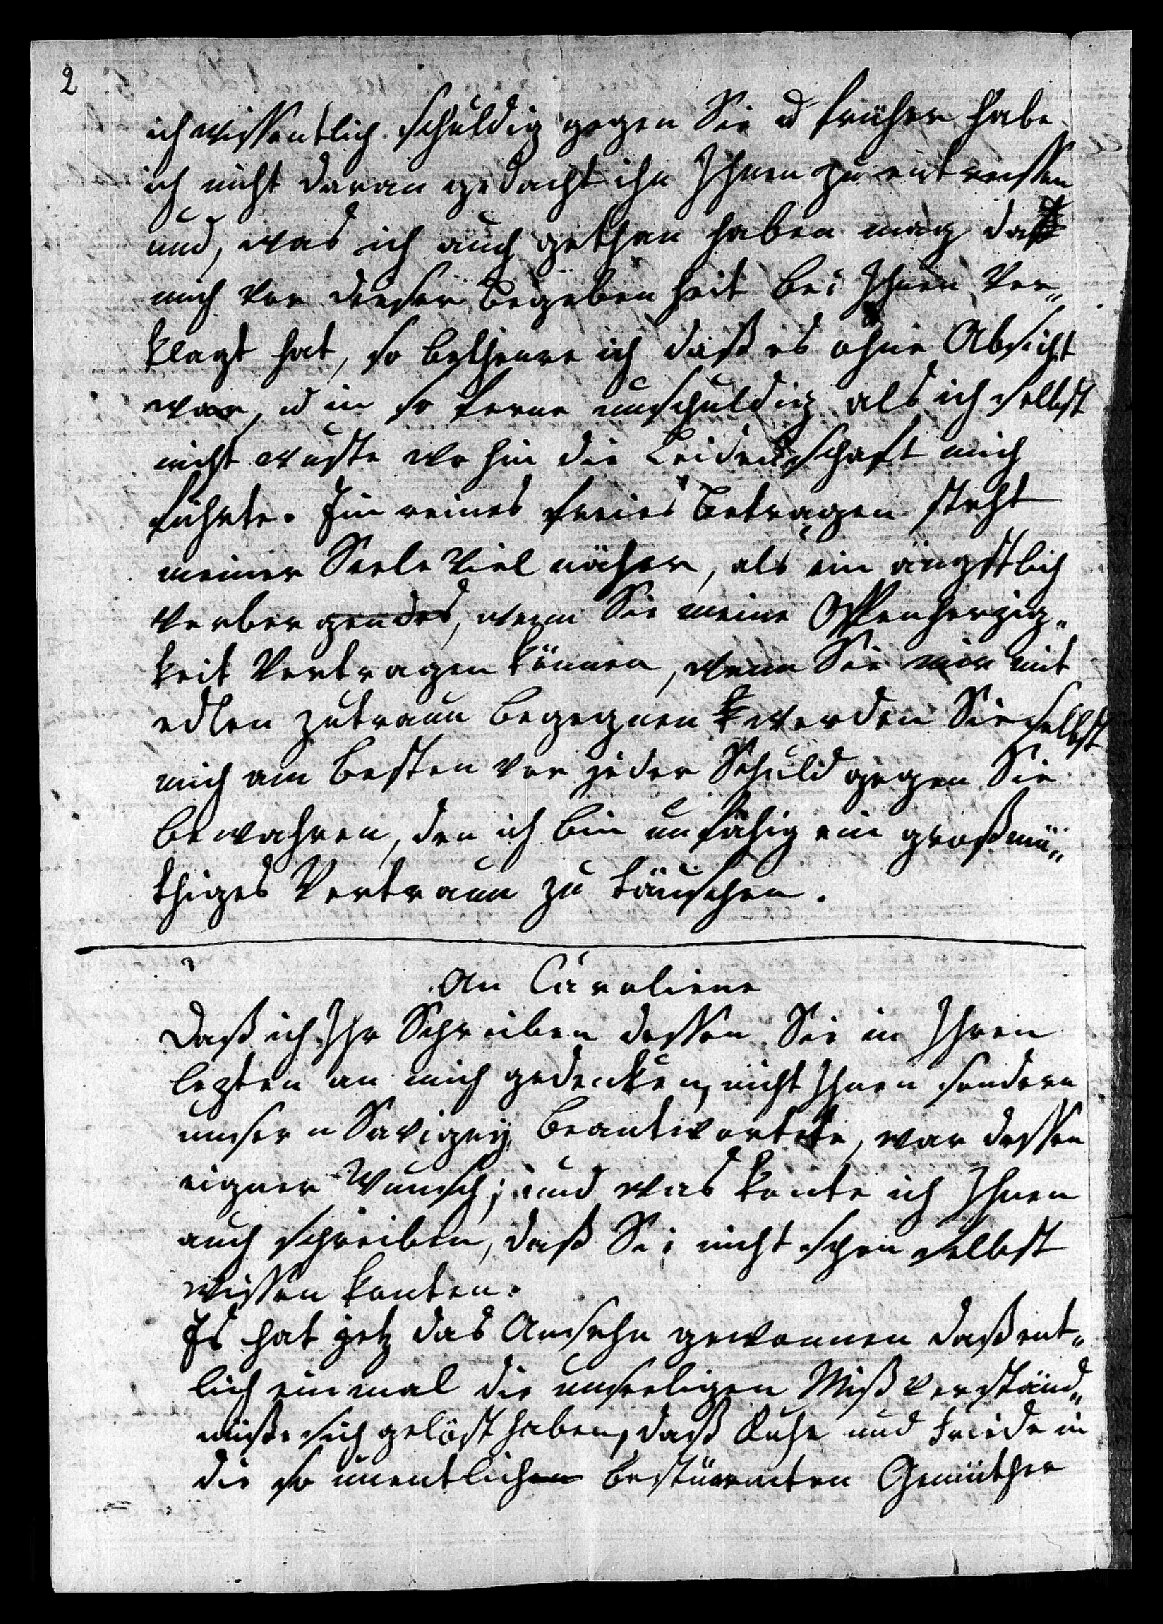 2
ich wissentlich schuldig gegen Sie u früher habe
ich nicht daran gedacht ihn Ihnen zu entreissen
und, was ich auch gethan haben mag daß
mich vor dieser Begebenheit bei Ihnen ver„
klagt hat, so betheure ich daß es ohne Absicht
war, u in so ferne unschuldig als ich selbst
nicht wuste wohin die Leidenschaft mich
führte. Ein reines freies Betragen steht
meiner Seele viel näher, als ein ängstlich
verbergendes, wenn Sie meine Offenherzig„
keit vertragen können, wenn Sie mir mit
edlen zutraun begegnen werden Sie selbst
mich am besten vor jeder Schuld gegen Sie
bewahren, den ich bin unfähig ein großmü„
thiges Vertraun zu täuschen.
An Caroliene
Daß ich Ihr Schreiben dessen Sie in Ihren
lezten an mich gedenken, nicht Ihnen sondern
unsern Savigny beantwortete, war dessen
eigner Wunsch; und was konte ich Ihnen
auch schreiben, daß Sie nicht schon selbst
wissen konten.
Es hat jetz das Ansehn gewonnen daß ent„
lich einmal die unseeligen Mißverständ„
niße sich gelöst haben, daß Ruhe und Friede in
die so unentlichen bestürmten Gemüther